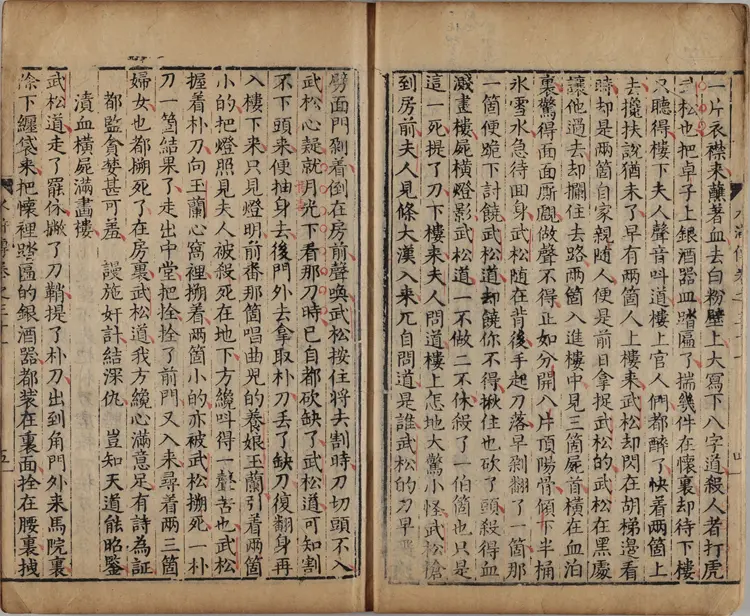 一片衣襟来蘸着血去白粉壁上大寫下八字道殺人者打虎
武松也把卓子上銀酒器皿踏匾了揣幾件在懷裏却待下樓
只聽得樓下夫人聲音呌道樓上官人們都醉了快着兩箇上
去攙扶說猶未了早有兩箇人上樓来武松却閃在胡梯邊看
時却是兩箇自家親隨人便是前日拿捉武松的武松在黑處
讓他過去却攔住去路兩箇入進樓中見三箇屍首橫在血泊
裏驚得面面厮覷做聲不得正如分開八片頂陽骨傾下半桶
氷雪水急待回身武松隨在背後手起刀落早剁翻了一箇那
一箇便跪下討饒武松道却饒你不得揪住也砍了頭殺得血
濺畫樓屍橫燈影武松道一不做二不休殺了一伯箇也只是
這一死提了刀下樓来夫人問道樓上怎地大驚小怪武松搶
到房前夫人見條大漢入来兀自問道是誰武松的刀早
四
劈面門剁着倒在房前聲喚武松按住將去割時刀切頭不入
武松心疑就月光下看那刀時已自都砍缺了武松道可知割
不下頭来便抽身去後門外去拿取朴刀丟了缺刀復翻身再
入樓下来只見燈明前番那箇唱曲兒的養娘王蘭引着兩箇
小的把燈照見夫人被殺死在地下方纔呌得一聲苦也武松
握着朴刀向王蘭心窩裡搠着兩箇小的亦被武松搠死一朴
刀一箇結果了走出中堂把拴拴了前門又入来尋着兩三箇
婦女也都搠死了在房裏武松道我方纔心滿意足有詩為証
都監貪婪甚可羞　謾施奸計結深仇　豈知天道能昭鑒
漬血橫屍滿畫樓
武松道走了罷休撇了刀鞘提了朴刀出到角門外来馬院裏
除下纏袋来把懷裡踏匾的銀酒器都装在裏面拴在腰裏拽
水滸傳卷之三十一　五